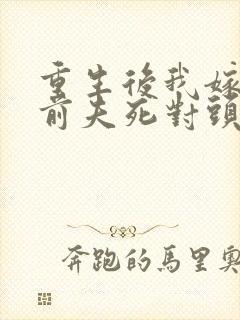 重生後我嫁
前夫死對頭
奔跑的馬里奧